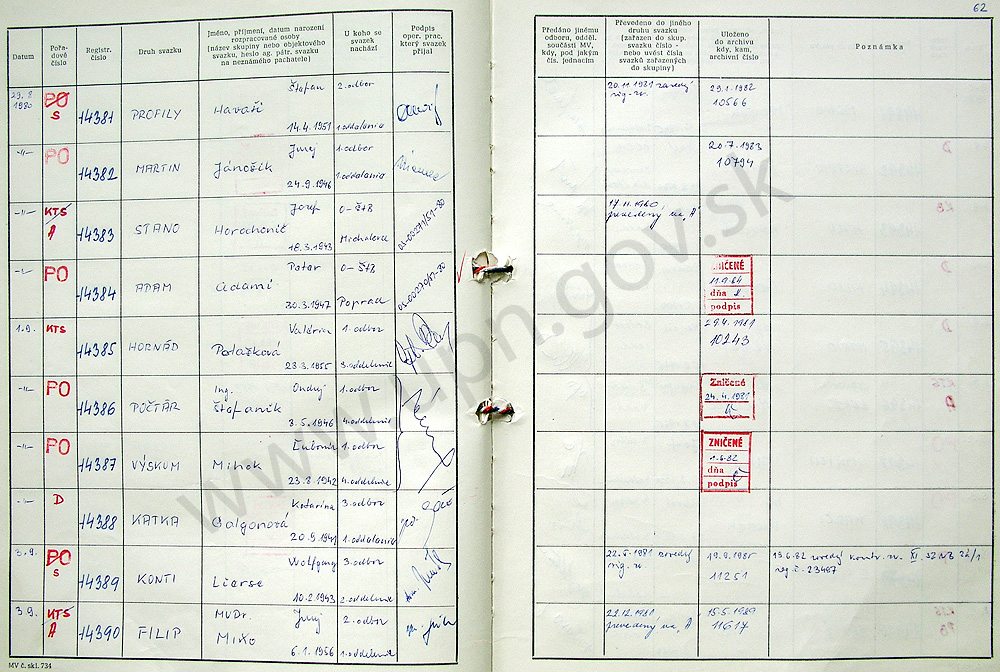 62
Datum
Pořa-
dové
číslo
Registr.
číslo
Druh svazku
Jméno, příjmení, datum narození
rozpracované osoby
(název skupiny nebo objektového
svazku, heslo ag. pátr. svazku
na neznámého pachatele)
U koho se
svazek
nachází
Podpis
oper. prac.
který svazek
přijal
Předáno jinému
odboru, odděl.
součásti MV,
kdy, pod jakým
čís. jednacím
Převedeno do jiného
druhu svazku
(zařazen do skup.
svazku číslo -
nebo uvést čísla
svazků zařazených
do skupiny)
Uloženo
do archivu
kdy, kam,
archivní číslo
Poznámka
29.8
1980
PO
S
14381
PROFILY
Štefan
Havaši
14.4.1951
2. odbor
1. oddelenie
20.11.1981
29.1.1982
10566
-"-
PO
14382
MARTIN
Juraj
Jánošík
24.9.1946
1. odbor
1. oddelenie
20.7.1983
10794
-"-
KTS
A
14383
STANO
Jozef
18.3.1943
O-ŠtB
Michalovce
17.11.1980,
prevedený na "A"
-"-
PO
14384
ADAM
Peter
Adami
30.3.1947
O-ŠtB
Poprad
ZNIČENÉ
dňa
podpis
1.9.
KTS
14385
HORNÁD
Valéria
Polašková
28.3.1955
1. odbor
3. oddelenie
29.4.1981
10243
-"-
PO
14386
POČTÁR
Ing. Ondrej
Štefaník
3.5.1946
1. odbor
4. oddelenie
Zničené
24.4.1981
-"-
PO
14387
VÝSKUM
Ľubomír
Mihok
23.8.1942
1. odbor
4. oddelenie
ZNIČENÉ
1.6.82
dňa
podpis
-"-
D
14388
KATKA
Katarína
Galgonová
3. odbor
1. oddelenie
3.9.
PO
S
14389
KONTI
Wolfgang
Lierse
10.2.1943
3. odbor
2. oddelenie
22.5.1981
19.9.1985
11251
reg.č. 23487
3.9.
KTS
A
14390
FILIP
MVDr. Juraj
Miko
6.1.1956
2. odbor
1. oddelenie
22.12.1981
prevedený na "A"
15.5.1989
11617
MV č. skl. 734
www.upn.gov.sk